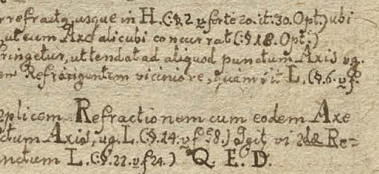 refracta, usque in H. (:§.2. vf forte 20. it. 30. Opt.) ubi
ut cum Axe alicubi concurrat (:§.18. Opt.)
ringetur, ut tendat ad aliquod punctum Axis vg.
Refringentem viciniore, quam it. L. (:§.6. vf
plicem Refractionem cum eodem Axe
ctum Axis, vg. L. (:§.14. vf 58.) Ergo it vi 2dæ Re=
nctum L. (:§.22. vf 24.) Q. E. D.